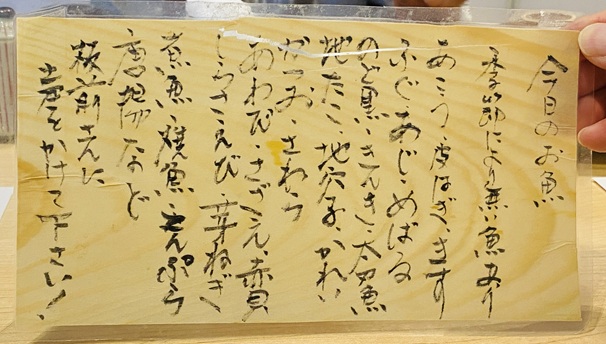 今日のお魚
季節により無い魚あり
あこう、皮はぎ、きす
ふぐ、あじ、めばる
のど黒、きんき、太刀魚
地たこ、地穴子、かれい
かつお、さわら
あわび、さざえ、赤貝
しらさえび、芽ねぎ
煮魚、焼魚、天ぷら
唐揚など
板前さんに
声をかけて下さい!